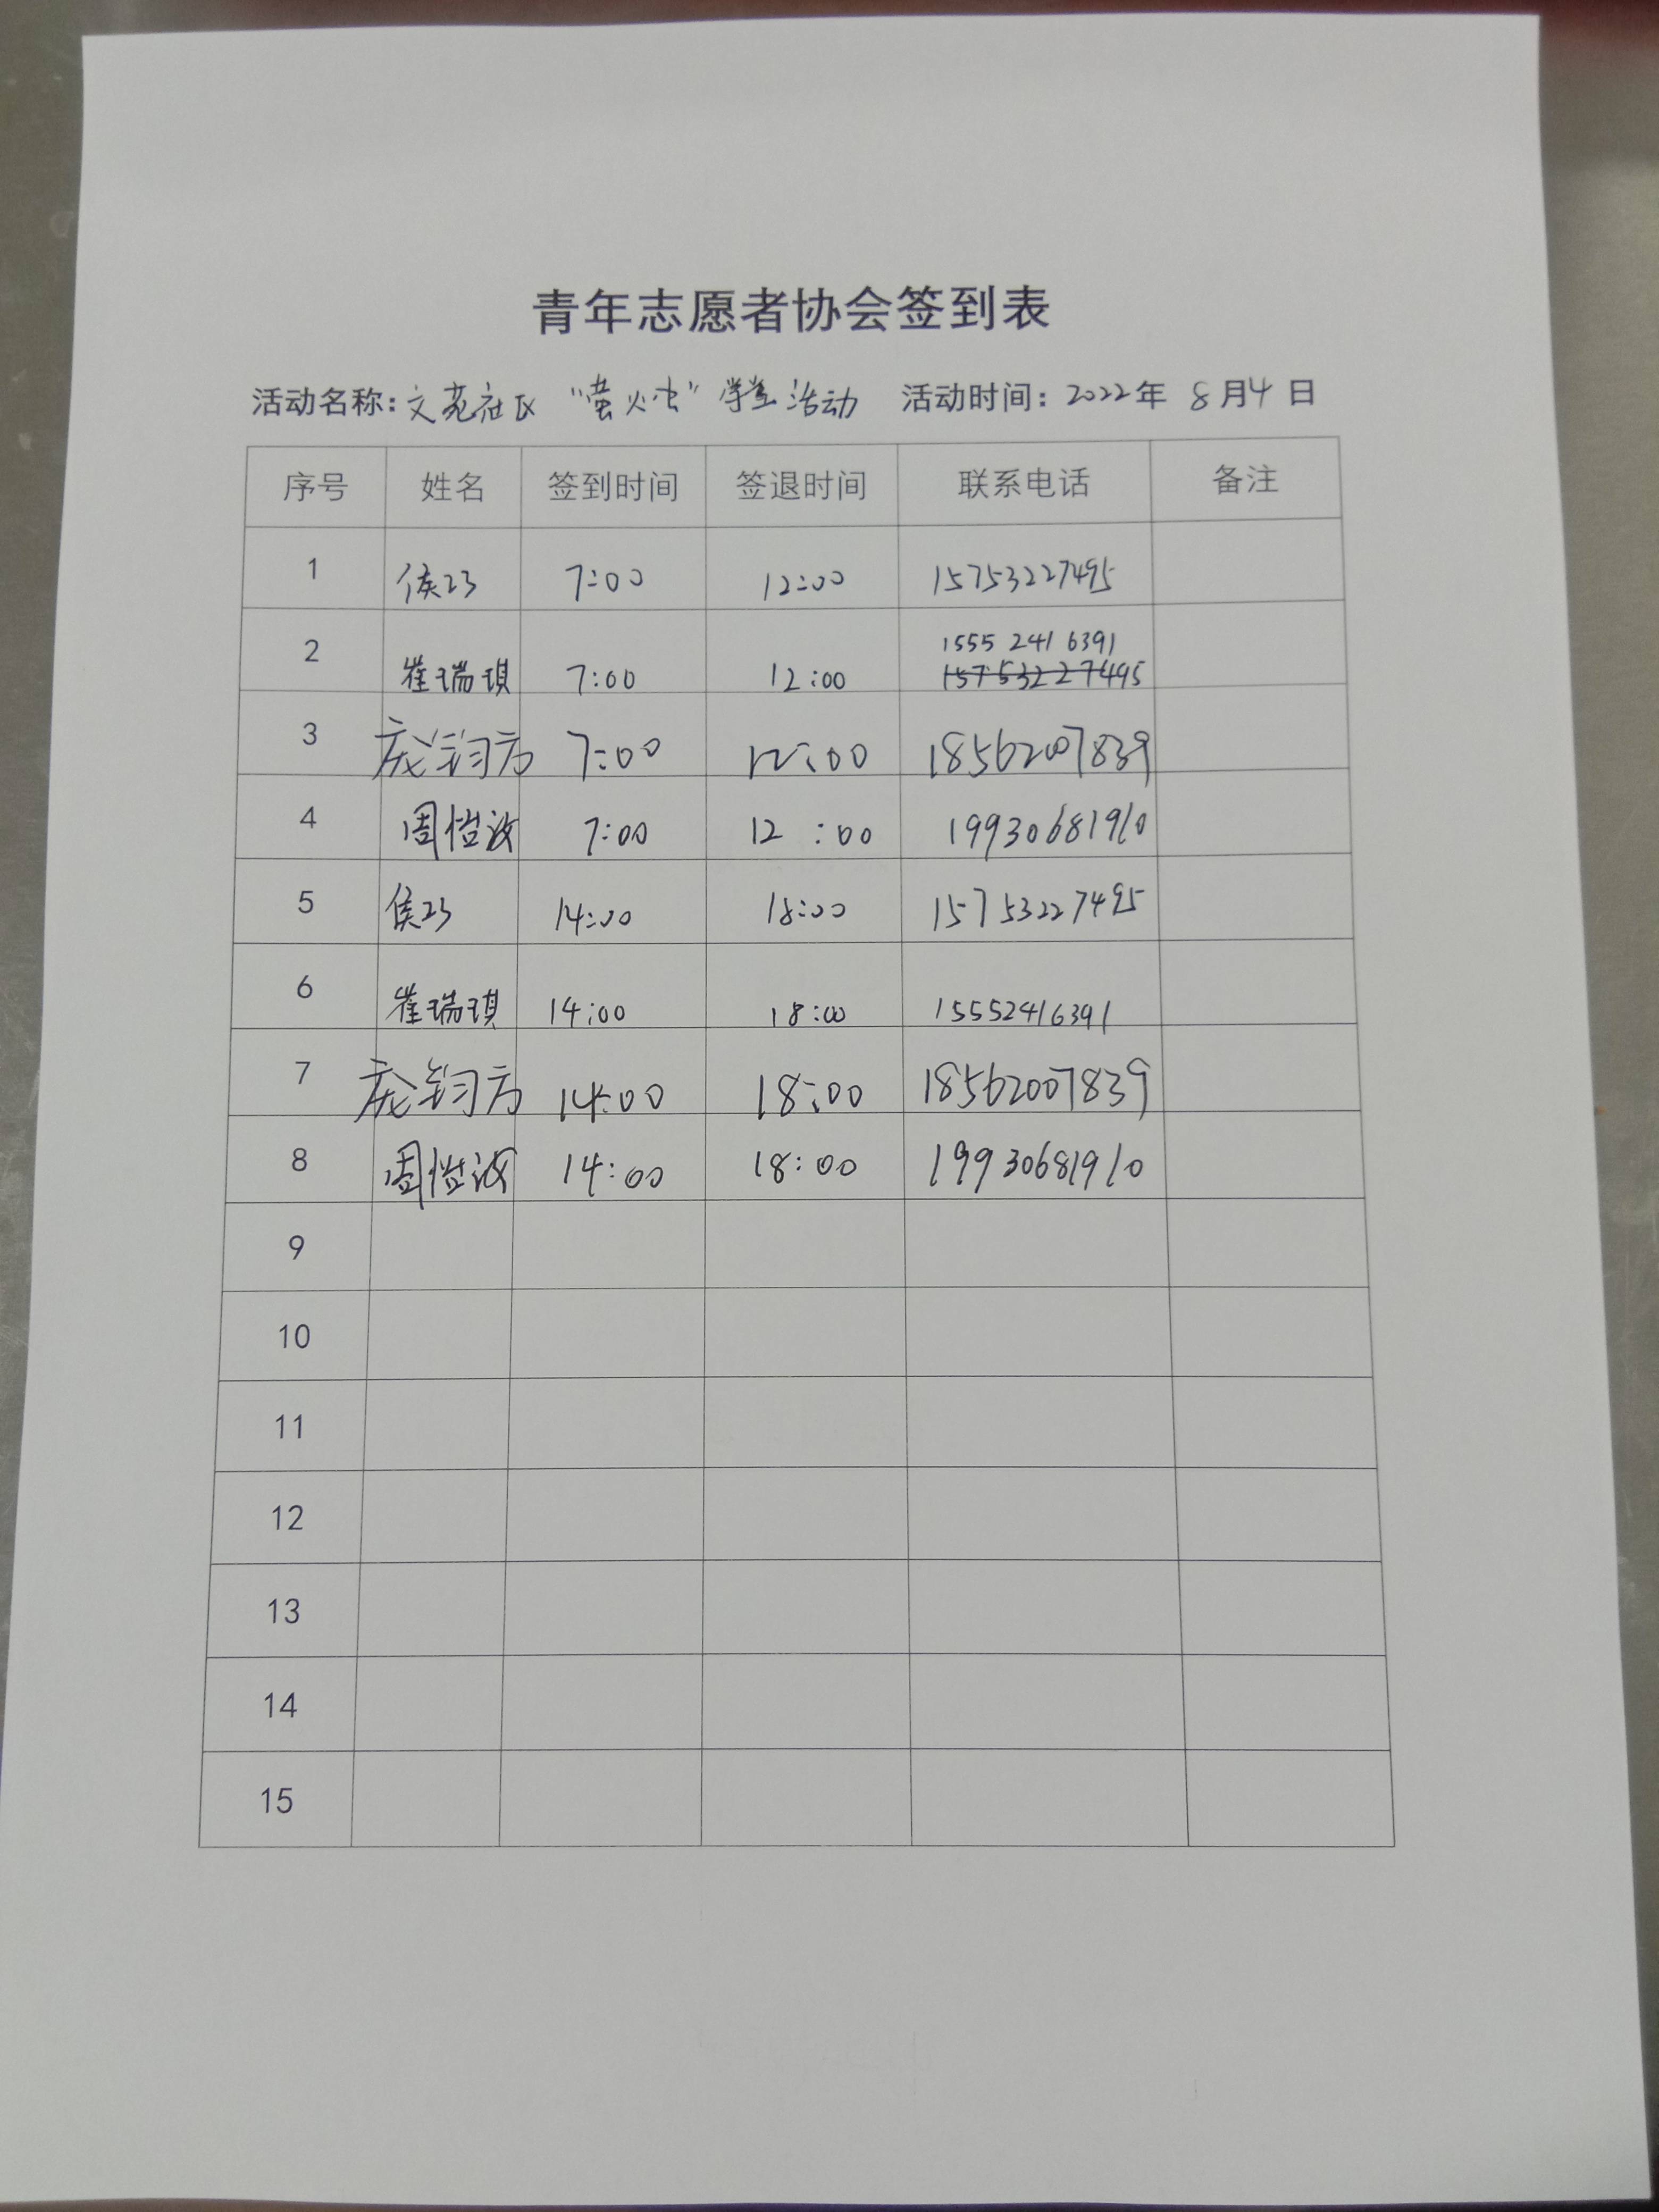 青年志愿者协会签到表
活动名称:文苑社区“萤火虫”学堂活动 活动时间:2022年 8月4日
序号 姓名 签到时间 签退时间 联系电话 备注
1 侯巧 7:00 12:00 15753227495
1555 241 6391
2 崔瑞琪 7:00 12:00 15753227495
3 庞钧方 7:00 12:00 18562007839
4 周恺 7:00 12:00 19930681910
5 侯巧 14:00 18:00 15753227495
6 崔瑞琪 14:00 18:00 15552416391
7 庞钧方 14:00 18:00 18562007839
8 周恺 14:00 18:00 19930681910
9
10
11
12
13
14
15